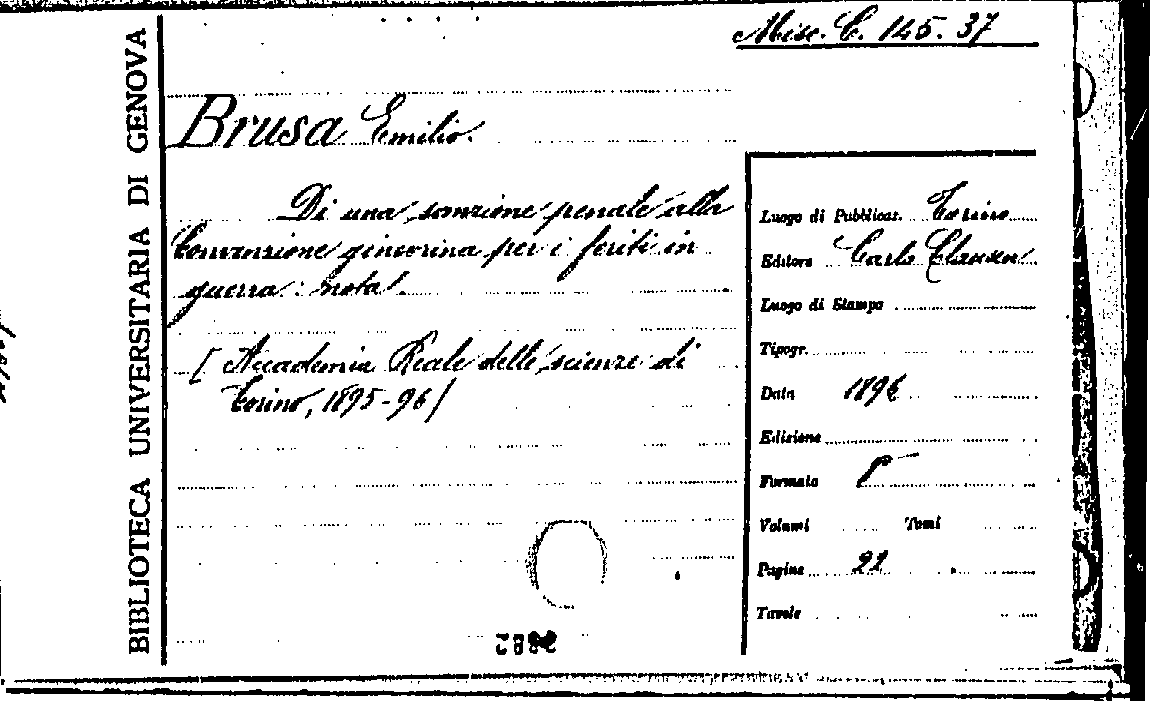 Misc. C. 145. 37
BIBLIOTECA UNIVERSITARIA DI GENOVA
Brusa Emilio.
Di una sanzione penale alla
Convenzione ginevrina per i feriti in
guerra: nota
[Accademia Reale delle scienze di
Torino, 1895-96]
Luogo di Pubblicaz. Torino
Editore Carlo Clausen
Luogo di Stampa
Tipogr.
Data 1896
Edizione
Formato 8°
Volumi Tomi
Pagine 22
Tavole